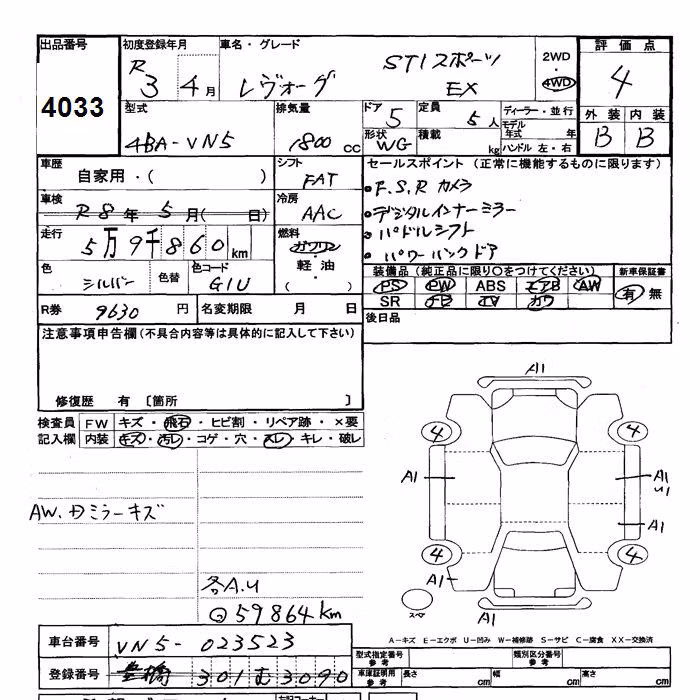 出品番号
4033
初度登録年月
R 3 4 月
車名・グレード
レヴォーグ
STI スポーツ
EX
2WD
・
4WD
評価点
4
外装 内装
B B
型式
4BA-VN5
排気量
1800 cc
ドア 5
形状 WG
定員 5 人
積載 kg
ディーラー・並行
モデル年式 年
ハンドル 左・右
車歴
自家用・( )
シフト
FAT
車検
R8年 5月( 日)
冷房
AAC
走行
5万9千860km
燃料
ガソリン
・
軽油
・
( )
色
シルバー
色替
色コード
G1U
R券 9630 円
名変期限 月 日
セールスポイント (正常に機能するものに限ります)
・F.S.R カメラ
・デジタルインナーミラー
・パドルシフト
・パワーバックドア
装備品 (純正品に限り○をつけてください)
PS PW ABS エアB AW
SR ナビ TV カワ
新車保証書
有・無
後日品
注意事項申告欄(不具合内容等は具体的に記入して下さい)
修復歴 有 〔箇所 〕
検査員記入欄
FW キズ・飛石・ヒビ割・リペア跡・×要
内装 キズ・汚レ・コゲ・穴・スレ・キレ・破レ
AW.
ミラーキズ
各A.U
59864km
A1
4 4
A1 A1
U1
A1
4 4
A1
スペア
A1
A-キズ E-エクボ U-凹み W-補修跡 S-サビ C-腐食 XX-交換済
車台番号 VN5-023523
登録番号 豊橋 301 む 3090
型式指定番号 参考
類別区分番号 参考
車庫証明用 参考
長さ cm 幅 cm 高さ cm